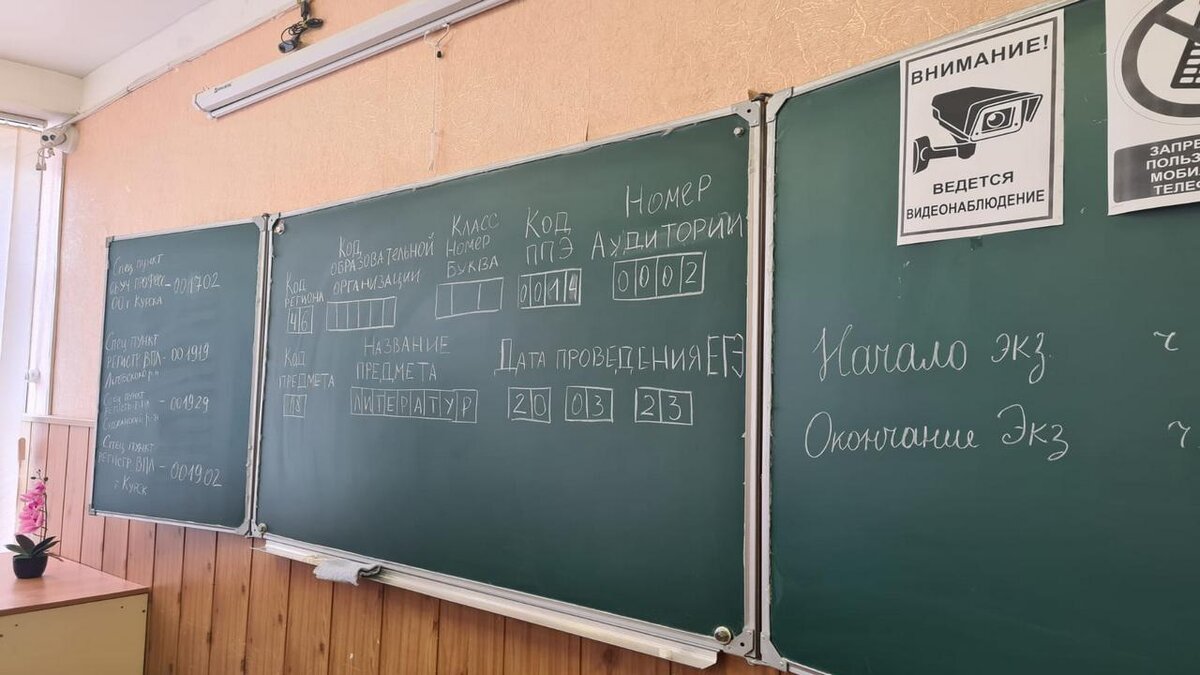 Спец пункт
ОБУЧ. ПРОФЕСС. - 001702
ОО г. Курска
Спец пункт
РЕГИСТР. ВПЛ - 001919
Спец пункт
РЕГИСТР. ВПЛ - 001929
Спец пункт
РЕГИСТР. ВПЛ - 001902
г Курск
Код
РЕГИОНА
46
Код
ОБРАЗОВАТЕЛЬНОЙ
ОРГАНИЗАЦИИ
Класс
Номер
Буква
Код
ППЭ
0014
Номер
Аудитории
0002
Код
ПРЕДМЕТА
18
НАЗВАНИЕ
ПРЕДМЕТА
ЛИТЕРАТУР
Дата проведения ЕГЭ
20 03 23
ВНИМАНИЕ!
ВЕДЕТСЯ
ВИДЕОНАБЛЮДЕНИЕ
ЗАПРЕ
ПОЛЬЗ
МОБИЛ
ТЕЛЕ
Начало экз ч
Окончание Экз ч